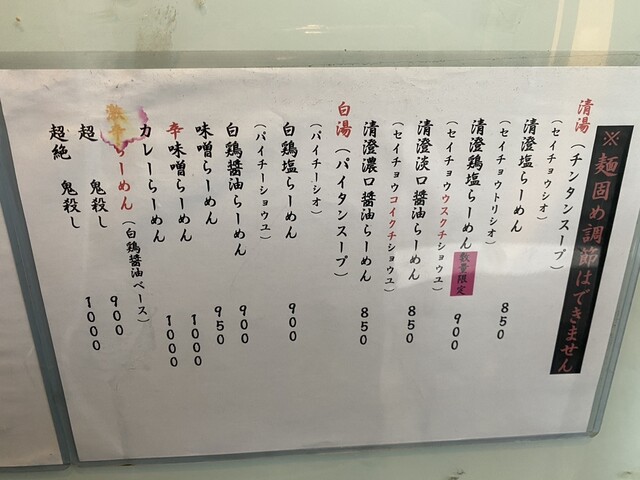 ※麺固め調節はできません
清湯(チンタンスープ)
(セイチョウシオ)
清澄塩らーめん 850
(セイチョウトリシオ)
清澄鶏塩らーめん 数量限定 900
(セイチョウウスクチショウユ)
清澄淡口醤油らーめん 850
(セイチョウコイクチショウユ)
清澄濃口醤油らーめん 850
白湯(パイタンスープ)
(パイチーシオ)
白鶏塩らーめん 900
(パイチーショウユ)
白鶏醤油らーめん 900
味噌らーめん 950
辛味噌らーめん 1000
カレーらーめん 1000
らーめん(白鶏醤油ベース)
超 鬼殺し 900
超絶 鬼殺し 1000